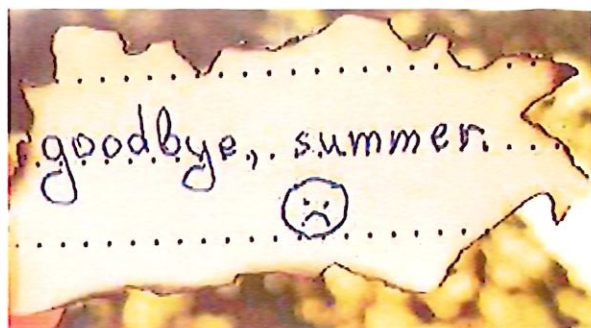 goodbye, summer